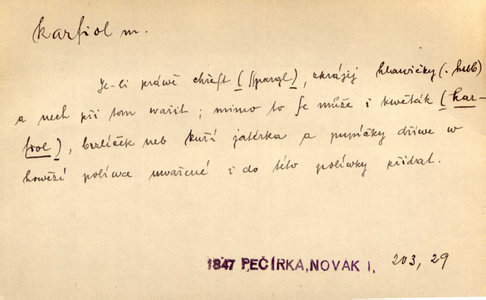 karfiol m.
Je-li právě chřest (Spargl), okrájej hlavičky (.
a nech při tom wařit; mimo to se může i květák (kar-
fiol), brzlíček neb kuří játérka a pupíčky dříwe w
howězí poléwce uvařené i do této poléwky přidat.
1847 PEČÍRKA, NOVÁK I, 203, 29